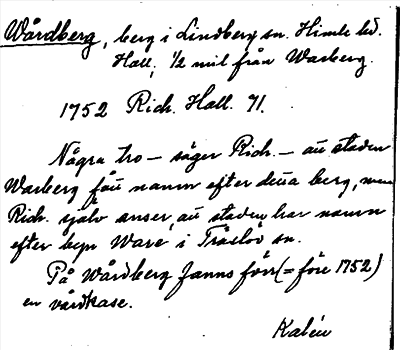 Wårdberg, berg i Lindberg sn. Himle hd.
Hall. 1/2 mil från Warberg.
1752 Rich. Hall. 71.
Några tro – säger Rich. – att staden
Warberg fått namn efter detta berg, men
Rich. själv anser, att staden har namn
efter byn Ware i Träslöv sn.
På Wårdberg fanns förr (= före 1752)
en vårdkase.
Kalén